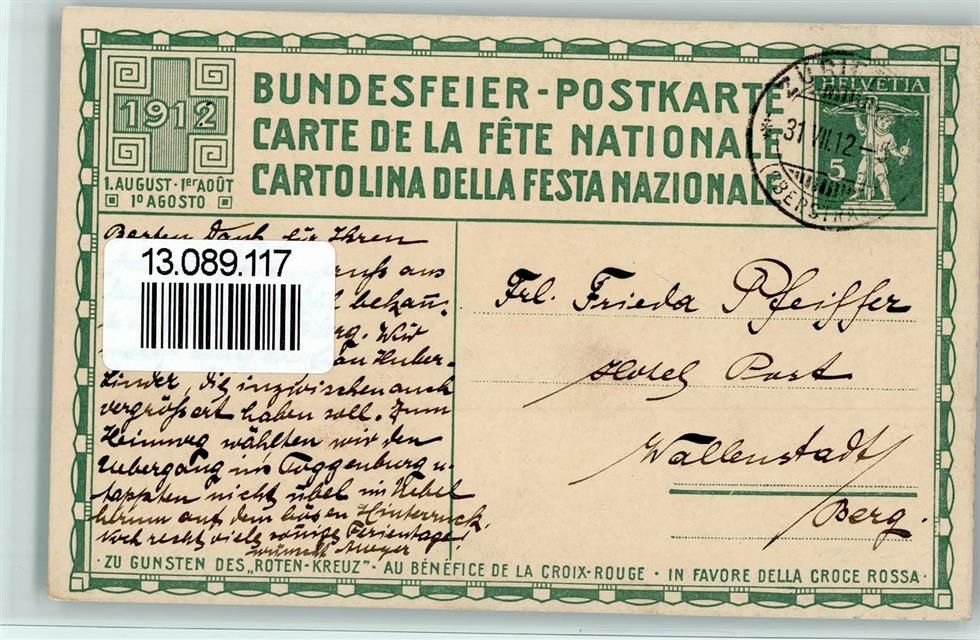 1912
1. AUGUST · 1er AOÛT
1º AGOSTO
BUNDESFEIER - POSTKARTE
CARTE DE LA FÊTE NATIONALE
CARTOLINA DELLA FESTA NAZIONALE
HELVETIA
5
31 VII. 12
Besten Dank für Ihren
aus
13.089.117
Wir
Huber-
Linder, die inzwischen auch
vergrößert haben soll. Zum
Heimweg wählten wir den
Uebergang ins Toggenburg u.
tappten nicht übel im Nebel
herum auf dem bösen Hinterruck.
Noch recht viele sonnige Ferientage!
wünscht Meyer
Frl. Frieda Pfeiffer
Hotel Post
Wallenstadt
Berg.
· ZU GUNSTEN DES „ROTEN-KREUZ" · AU BÉNÉFICE DE LA CROIX-ROUGE · IN FAVORE DELLA CROCE ROSSA ·